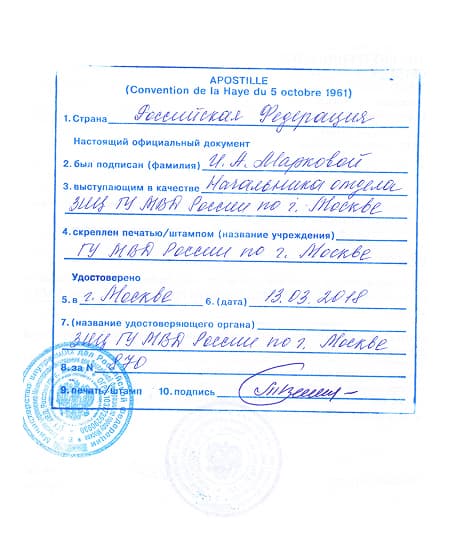 APOSTILLE
(Convention de la Haye du 5 octobre 1961)
1. Страна Российская Федерация
Настоящий официальный документ
2. был подписан (фамилия) И. А. Марковой
3. выступающим в качестве Начальника отдела
ЗИЦ ГУ МВД России по г. Москве
4. скреплен печатью/штампом (название учреждения)
ГУ МВД России по г. Москве
Удостоверено
5. в г. Москве 6. (дата) 13.03.2018
7. (название удостоверяющего органа)
ЗИЦ ГУ МВД России по г. Москве
8. за N 970
9. печать/штамп 10. подпись